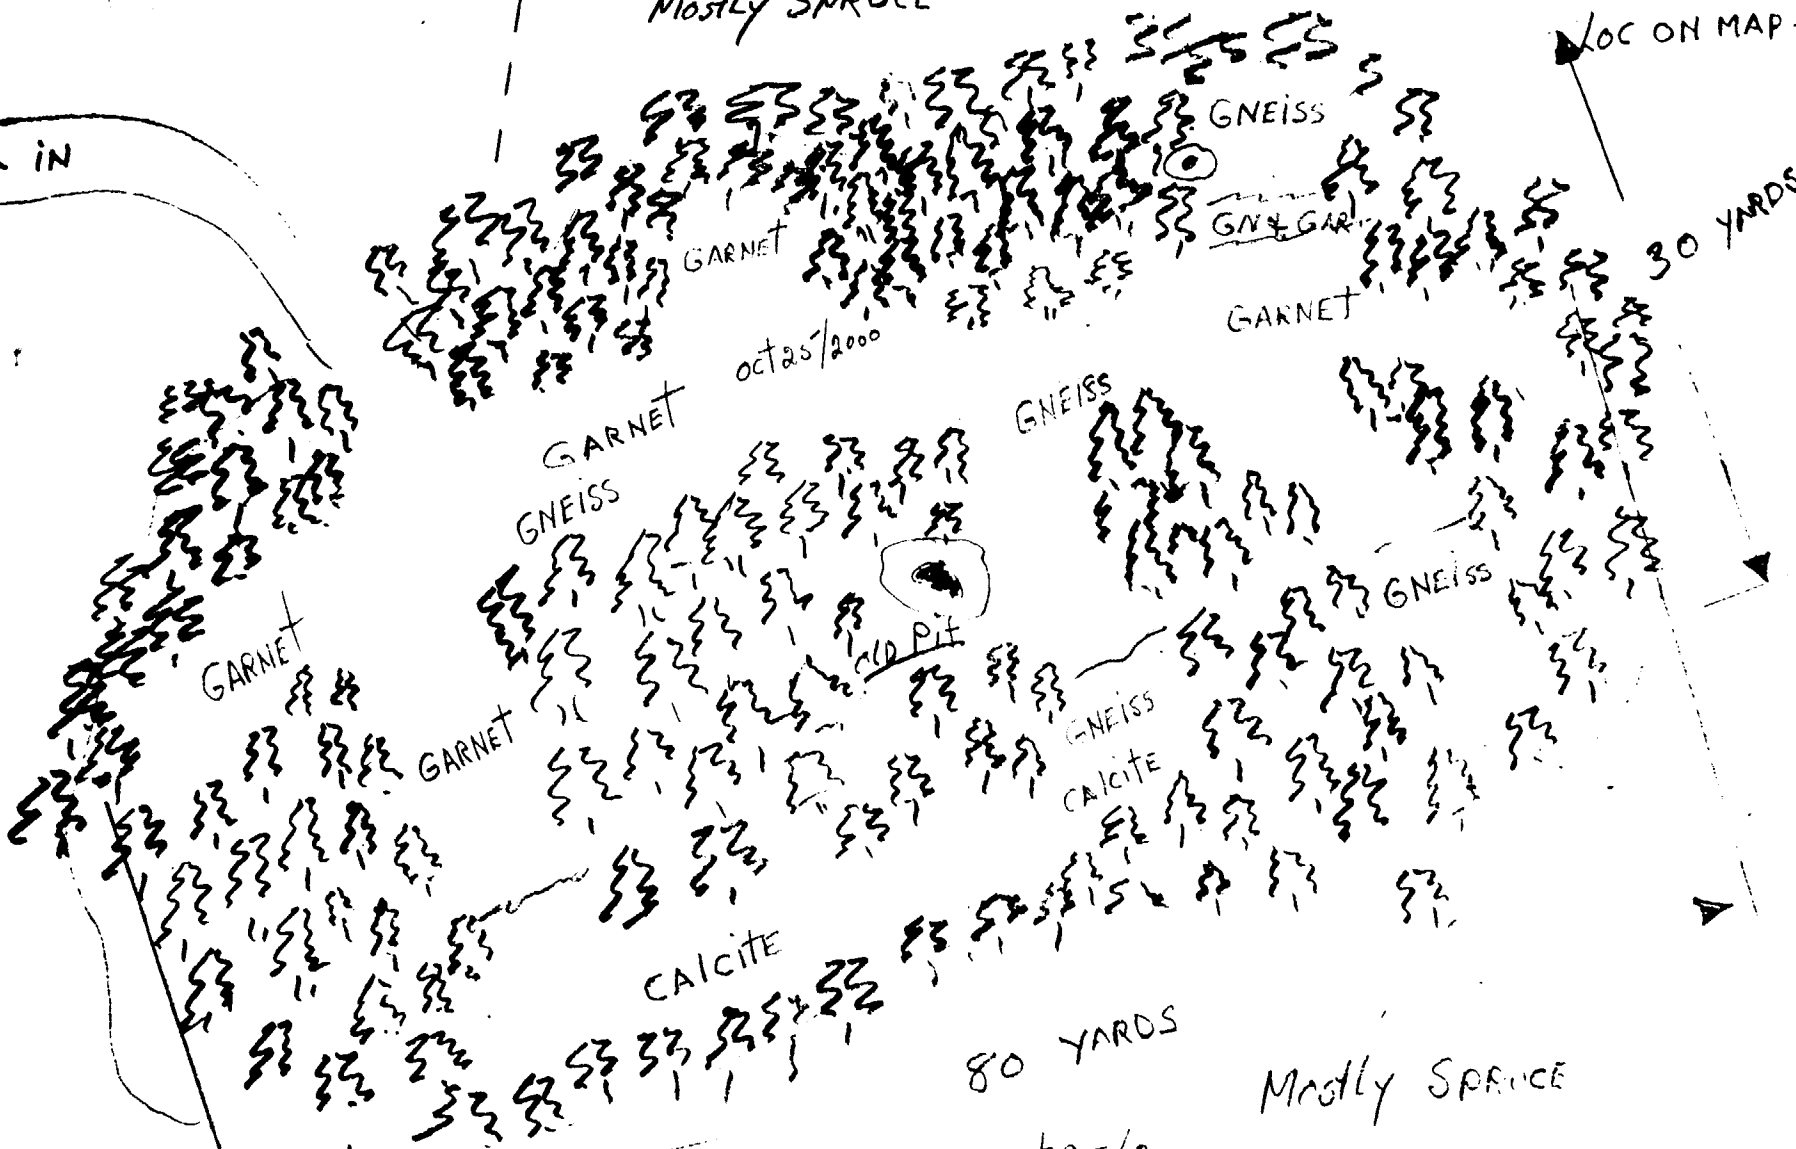 Mostly SPRUCE
LOC ON MAP
IN
GNEISS
30 YARDS
GN & GAR.
GARNET
GARNET
OCT 25/2000
GNEISS
GARNET
GNEISS
GNEISS
OLD Pit
GARNET
GARNET
GNEISS
CALCITE
CALCITE
80 YARDS
Mostly SPRUCE